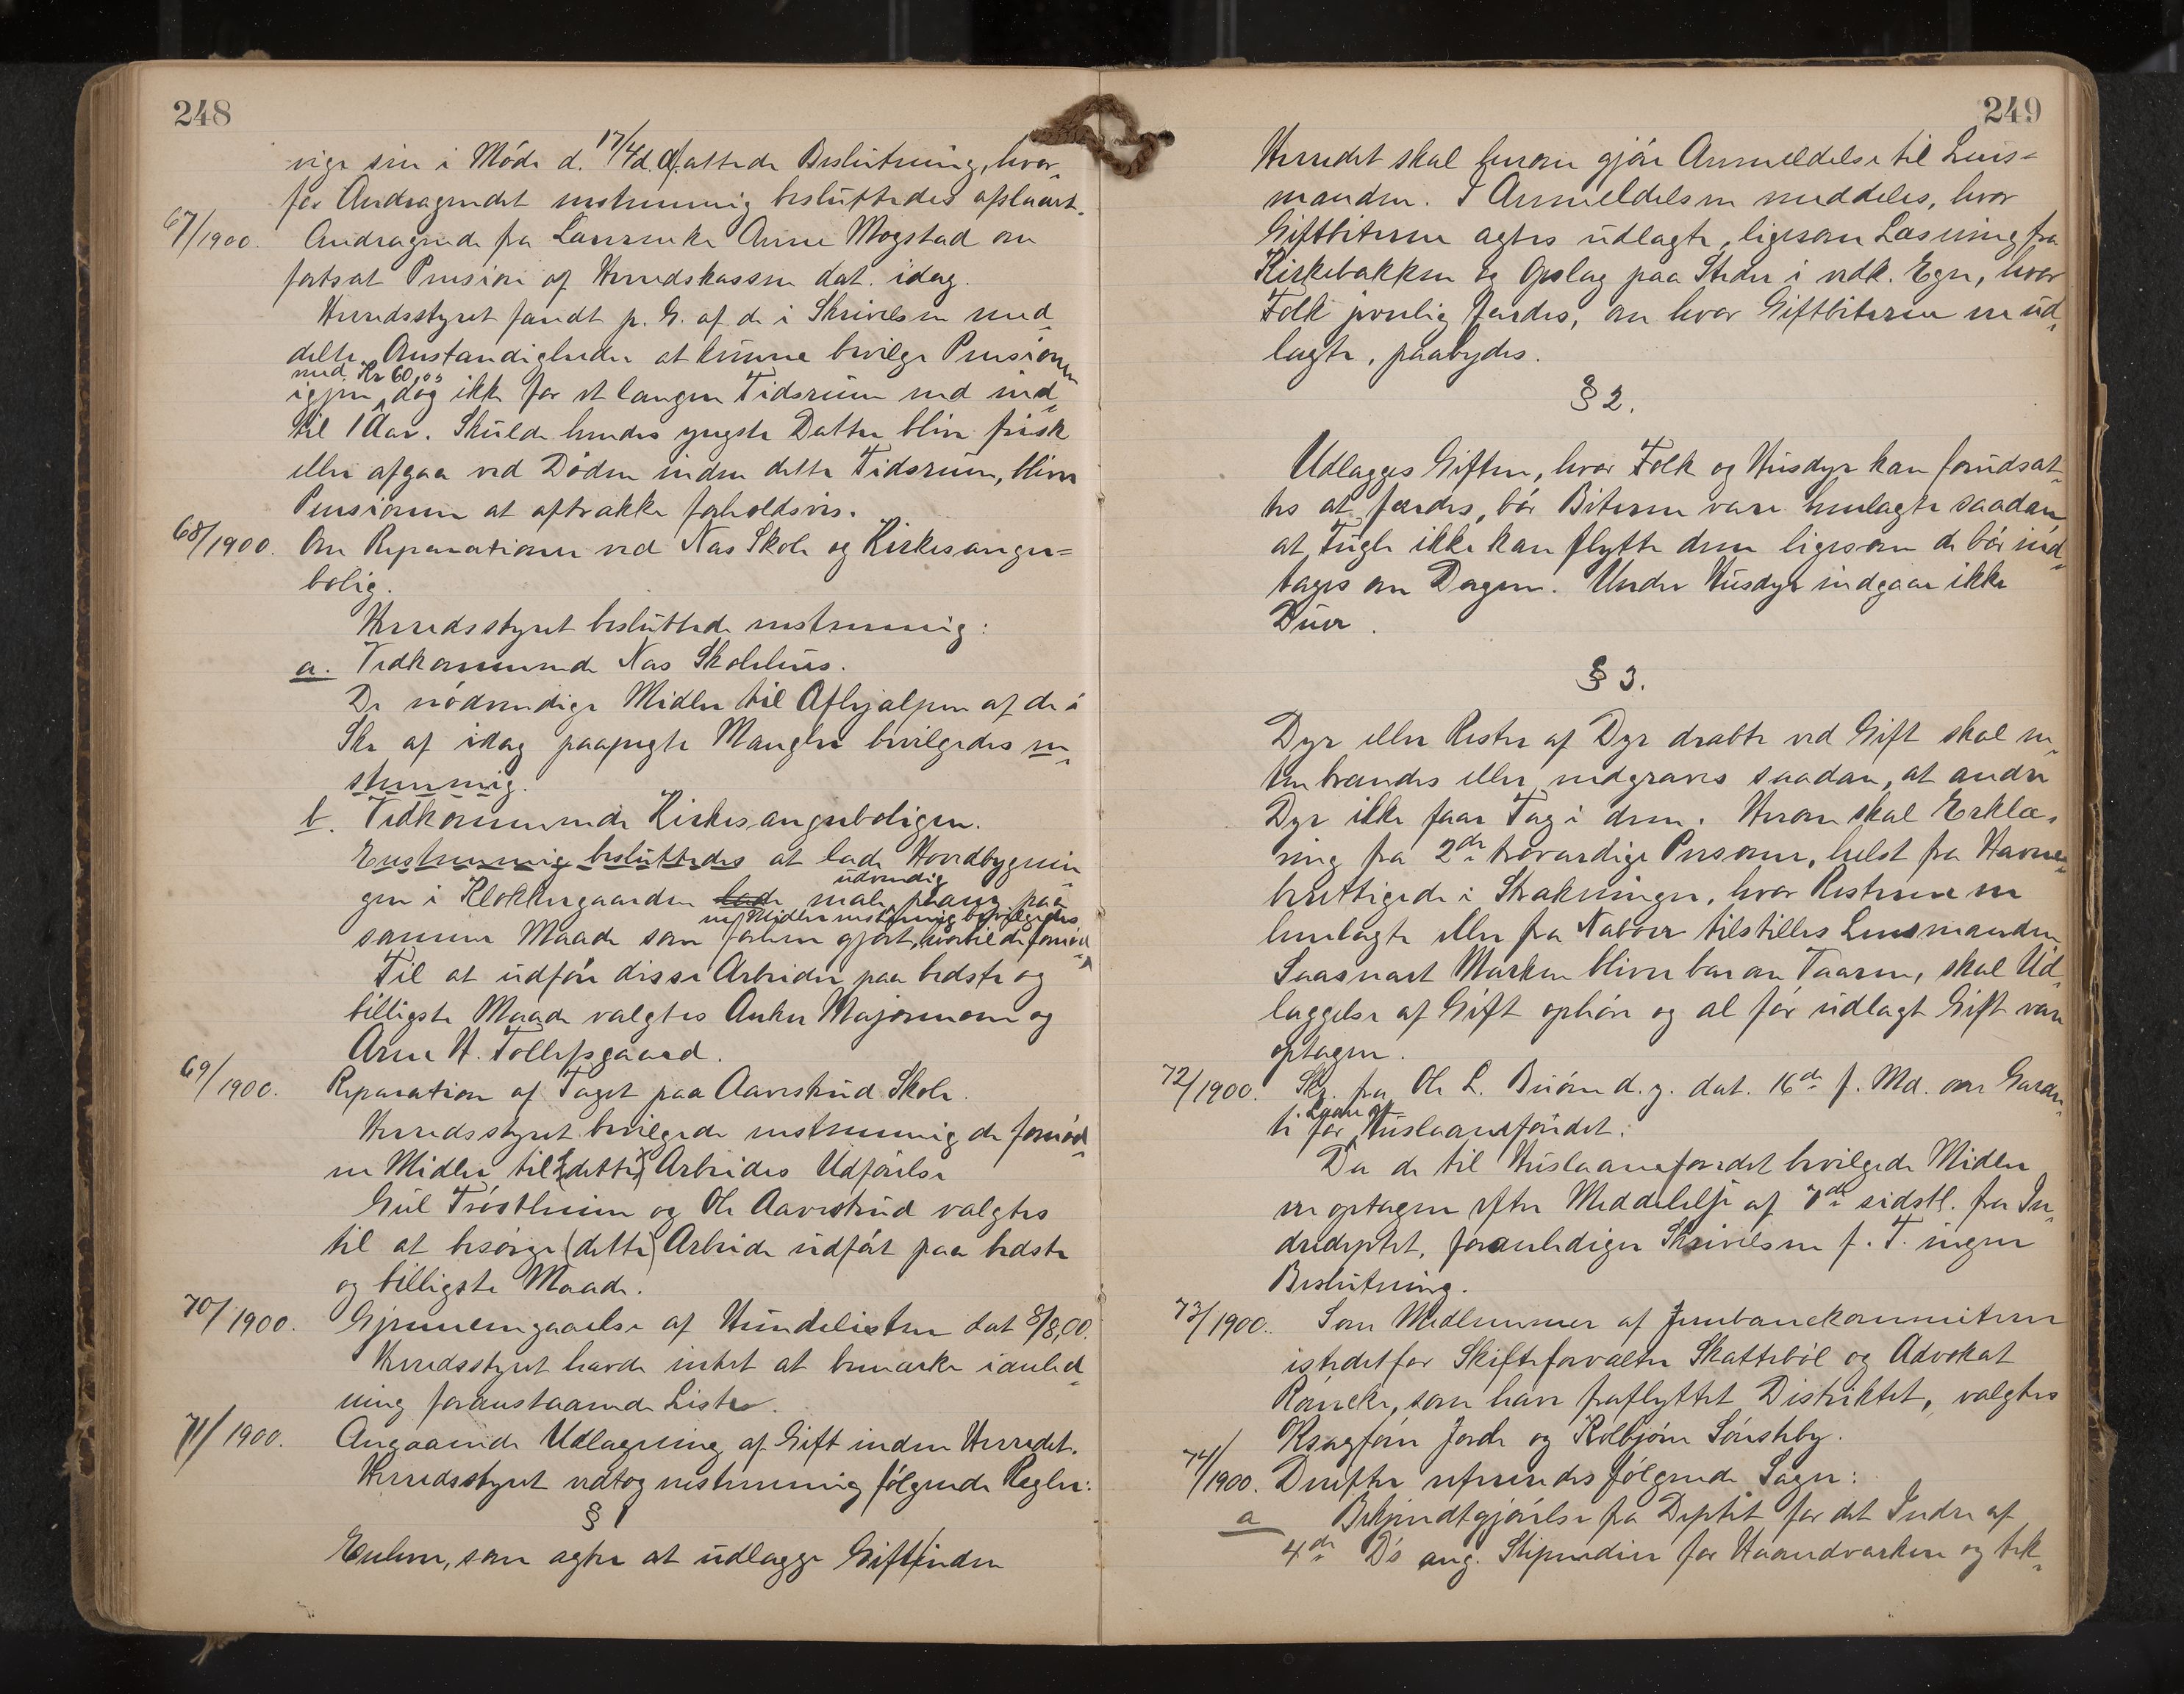 248
vige sin i Møde d. 17/4 d. A. fattede Beslutning, hvor-
for Andragendet enstemmig besluttedes afslaaet.
67/1900. Andragende fra Lærerenke Anne Mogstad om
fortsat Pension af Herredskassen dat. idag.
Herredsstyret fandt p. G. af de i Skrivelsen med-
delte Omstændigheder at kunne bevilge Pensionen
med Kr 60,00
igjen, dog ikke for et længer Tidsrum end ind-
til 1 Aar. Skulde hendes yngste Datter blive frisk
eller afgaa ved Døden inden dette Tidsrum, bliver
Pensionen at aftrække forholdsvis.
68/1900. Om Reparationer ved Næs Skole og Kirkesanger=
bolig.
Herredsstyret besluttede enstemmig:
a. Vedkommende Næs Skolehus.
De nødvendige Midler til Afhjælpen af de i
Skr. af idag paapegte Mangler bevilgedes en-
stemmig.
b. Vedkommende Kirkesangerboligen.
Enstemmig besluttedes at lade Hovedbygnin-
udvendig
gen i Klokkergaarden lade male paany paa
ne Midler enstemmig bevilgedes
samme Maade som forhen gjort, hvortil de fornød-
Til at udføre disse Arbeider paa bedste og
billigste Maade valgtes Anker Majormoen og
Arne H. Tollefsgaard.
69/1900. Reparation af Taget paa Aavestrud Skole.
Herredsstyret bevilgede enstemmig de fornød-
ne Midler til (dette) Arbeides Udførelse
Gul Trøstheim og Ole Aavestrud valgtes
til at besørge (dette) Arbeide udført paa bedste
og billigste Maade.
70/1900. Gjennemgaaelse af Hundelisten dat 8/8,00.
Herredsstyret havde intet at bemærke i anled-
ning foranstaaende Liste.
71/1900. Angaaende Udlægning af Gift inden Herredet.
Herredsstyret vedtog enstemmig følgende Regler:
§ 1
Enhver, som agter at udlægge Gift inden
249
Herredet skal herom gjøre Anmeldelse til Lens=
manden. I Anmeldelsen meddeles, hvor
Giftbiterne agtes udlagte, ligesom Læsning fra
Kirkebakken og Opslag paa Steder i vedk. Egn, hvor
Folk jevnlig færdes, om hvor Giftbiterne er ud-
lagte, paabydes.
§ 2.
Udlægges Giften, hvor Folk og Husdyr kan forudsæt-
tes at færdes, bør Biterne være henlagte saadan,
at Fugle ikke kan flytte dem ligesom de bør ind-
tages om Dagen. Under Husdyr indgaar ikke
Duer.
§ 3.
Dyr eller Rester af Dyr dræbte ved Gift skal en-
ten brændes eller nedgraves saadan, at andre
Dyr ikke faar Tag i dem. Herom skal Erklæ-
ring fra 2de troværdige Personer, helst fra Havne-
berettigede i Strækningen, hvor Resterne er
henlagte eller fra Naboer tilstilles Lensmanden.
Saasnart Marken bliver bar om Vaaren, skal Ud-
læggelse af Gift ophøre og al før udlagt Gift være
optagen.
72/1900. Skr. fra Ole L. Buøen d. y. dat. 16de f. Md. om Garan-
Laan af
ti for Huslaanefondet.
Da de til Huslaanefondet bevilgede Midler
er optagen efter Meddelelse af 7de sidstl. fra In-
dredeptet, foranlediger Skrivelsen f. T. ingen
Beslutning.
73/1900. Som Medlemmer af Jernbanekommiteen
istedetfor Skifteforvalter Skattebøl og Advokat
Roncke, som have fraflyttet Distriktet, valgtes
Jorde og Kolbjørn Sønsteby.
74/1900. Derefter refereredes følgende Sager:
a Bekjendtgjørelse fra Deptet for det Indre af
4de Ds ang. Stipendier for Haandværkere og tek-